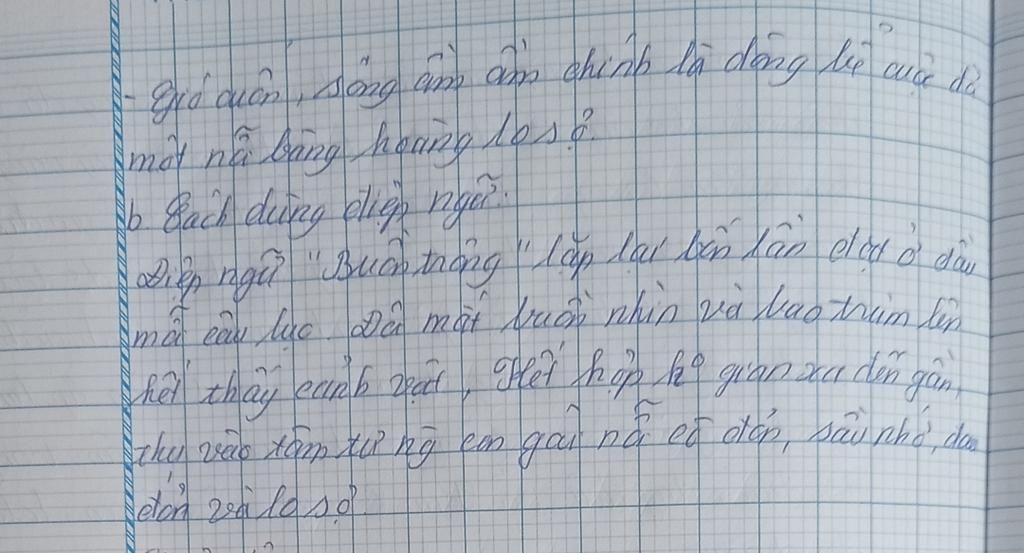 - gió cuốn, sóng ầm ầm chính là dông
một nỗi bàng hoàng lo sợ.
b Cách dùng điệp ngữ.
Điệp ngữ "Buồn trông" lặp lại bốn lần đặt ở đầu
mỗi câu lục. Đôi mắt buồn nhìn và bao trùm lên
hết thảy cảnh vật, kết hợp ko gian xa đến gần,
thu vào tâm tư ng con gái nỗi cô đơn, sầu nhớ, đau
đớn và lo sợ.